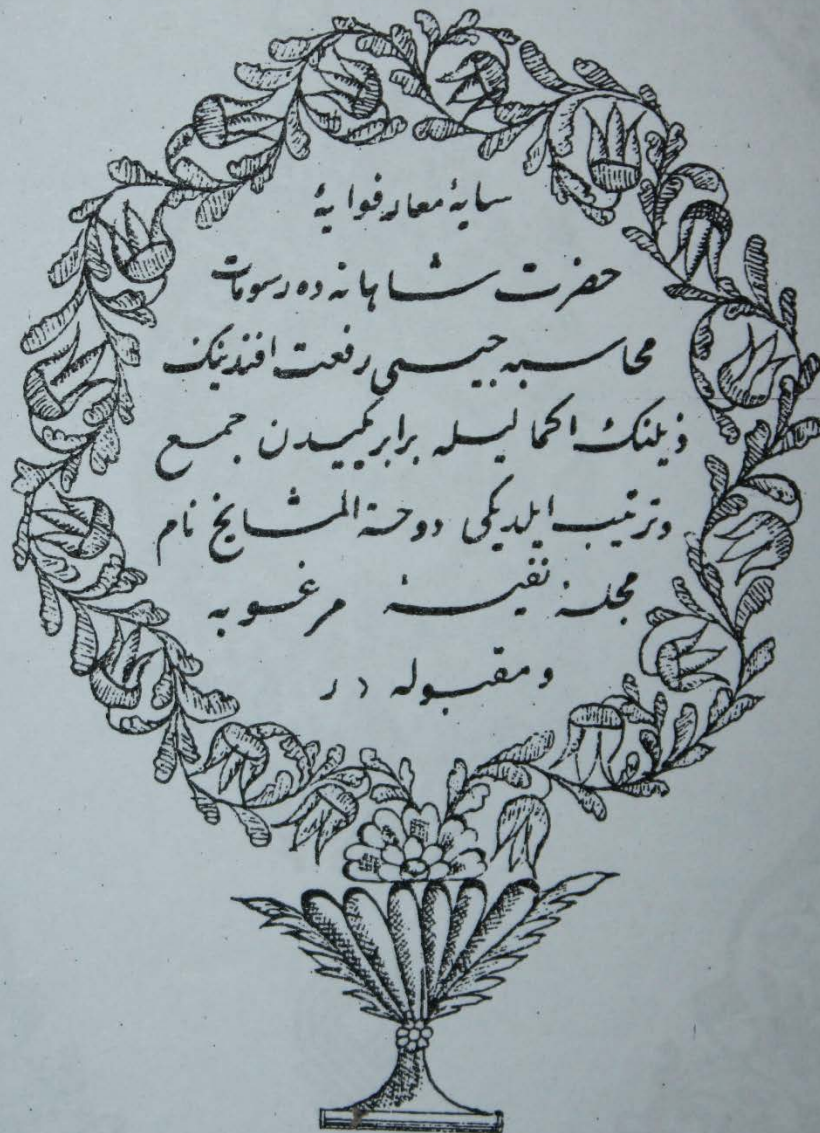 سایهٔ معارفوایهٔ
حضرت شاهانه ده رسومات
محاسبه جیسی رفعت افندینک
ذیلنک اکمالیله برابر یکیدن جمع
وترتیب ایلدیکی دوحة المشایخ نام
مجلهٔ نفیسهٔ مرغوبه
ومقبوله در